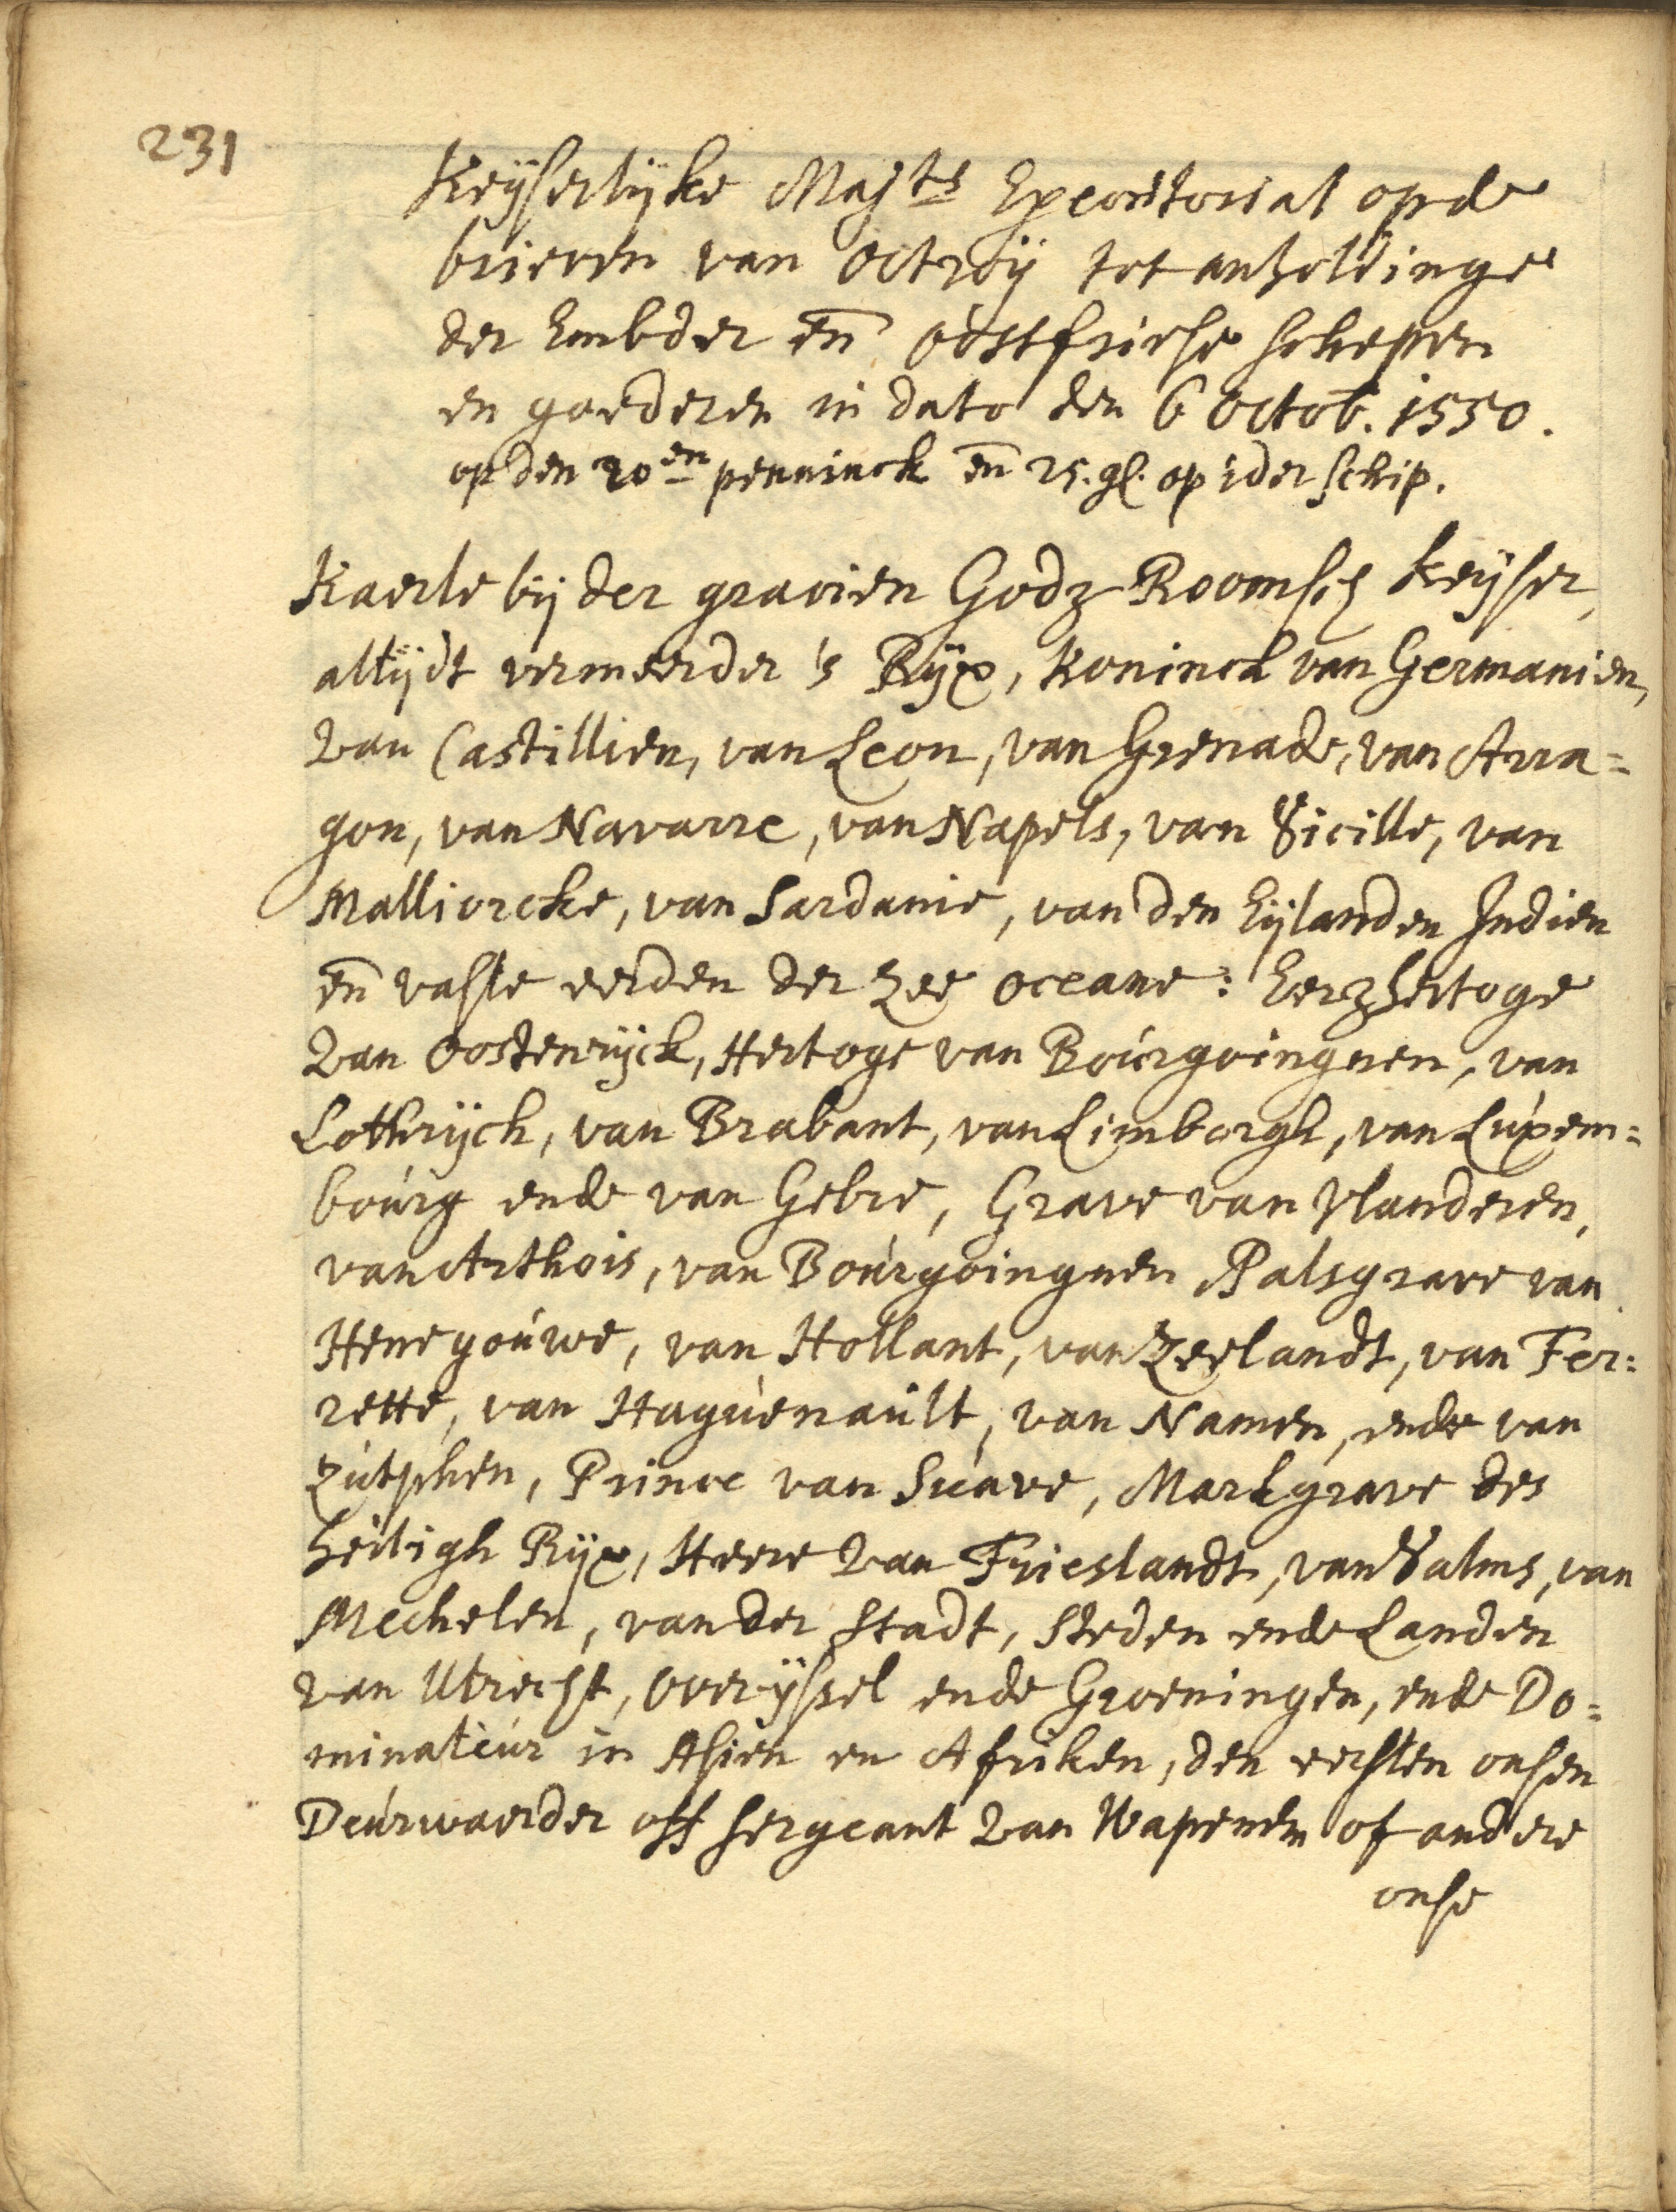 231
Keÿserlÿcke Majts Executoriael op de
brieven van Octroÿ tot anholdinge
der Embder en̄ Oostfriese schepen
en goederen in dato den 6 Octob. 1550.
op den 20en penninck en̄ 25. gl. op ider schip.
Kaerle bij der gracien Godz Roomsch keÿser,
altijdt vermeerder 's Rÿx, Koninck van Germanien,
van Castillien, van Leon, van Grenade, van Arra=
gon, van Navarre, van Napels, van Sicille, van
Malliorcke, van Sardanie, van den Eijlanden Indien
en̄ vaste eerden der zee oceane: Eerzhertoge
van Oostenrijck, Hertoge van Bourgoingnen, van
Lothrijck, van Brabant, van Limborgh, van Luxem=
bourg ende van Gelre, Grave van Vlanderen,
van Arthois, van Bourgoingnen Palsgrave van
Henegouwe, van Hollant, van Zeelandt, van Fer=
rette, van Haguenault, van Namen, ende van
Zutphen, Prince van Suave, Markgrave des
heiligh Rÿx, Heere van Frieslandt, van Salms, van
Mechelen, van der stadt, steden ende Landen
van Utrecht, Overÿssel ende Groeningen, ende Do=
minateur in Asien en Afriken, den eersten onsen
Deurwaerder off sergeant van Wapenen of andere
onse